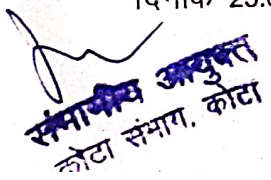 दिनांक 23.
संभागीय आयुक्त
कोटा संभाग, कोटा